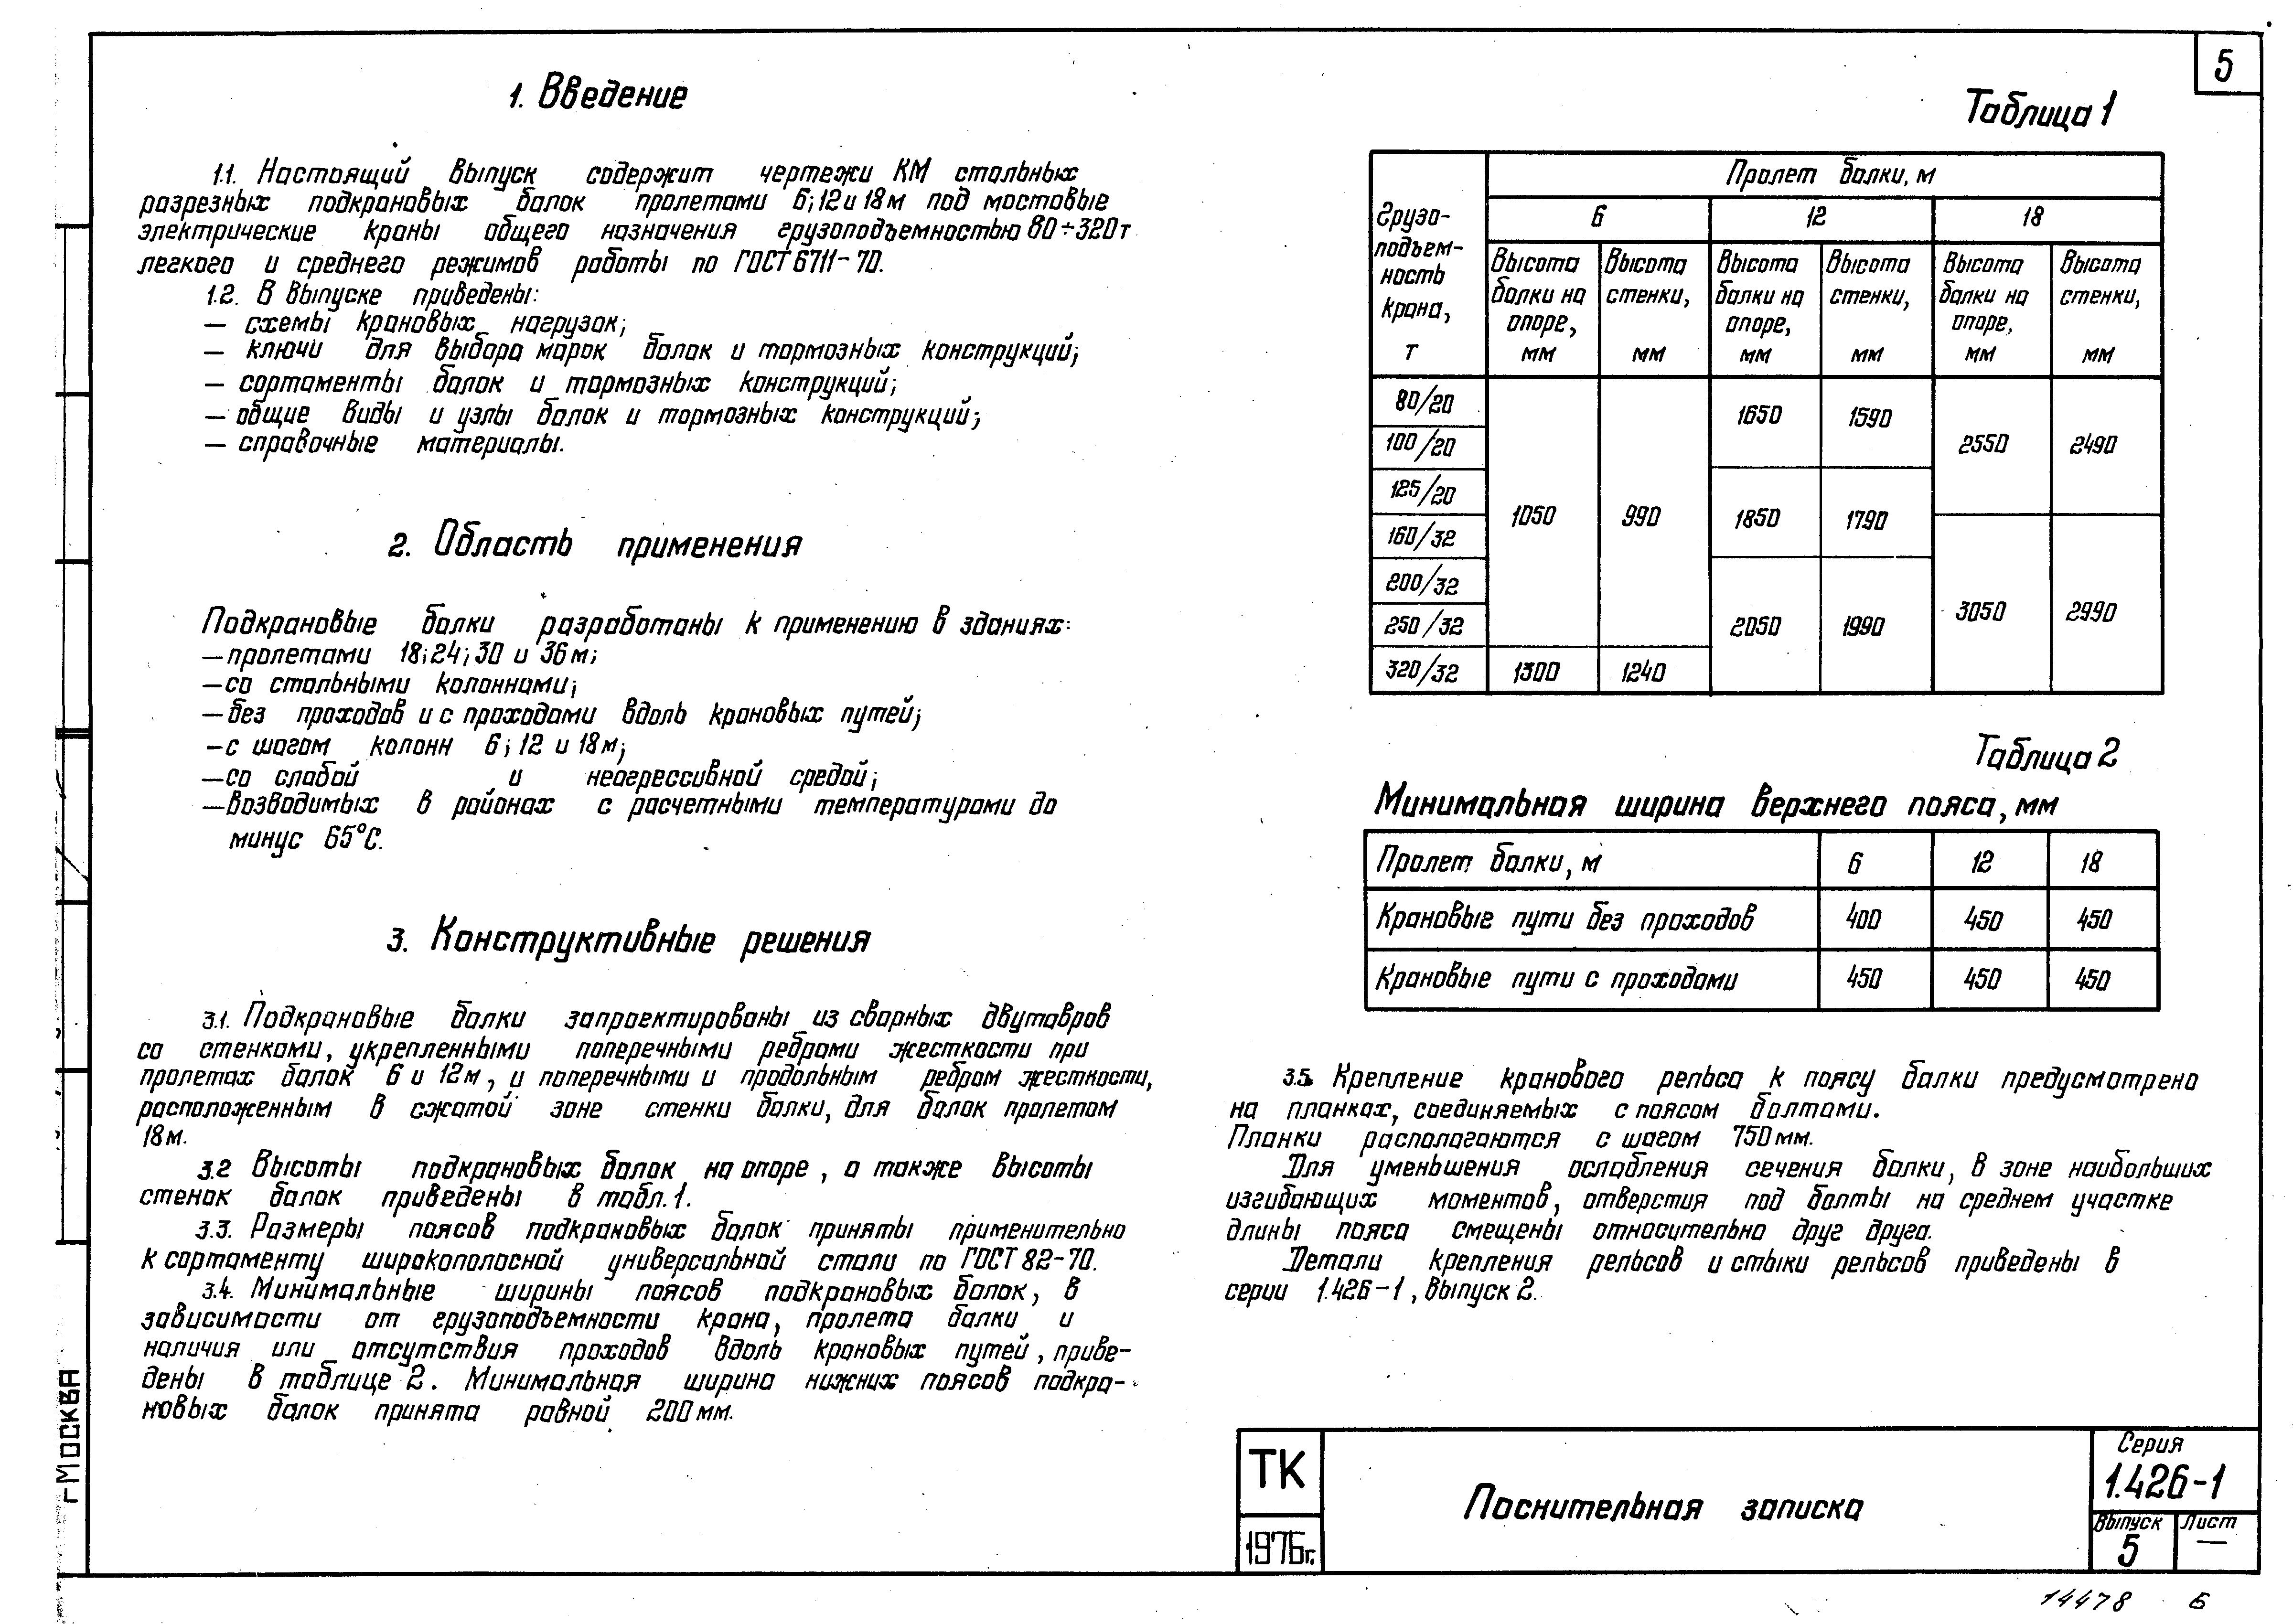 5
1. Введение
1.1. Настоящий выпуск содержит чертежи КМ стальных
разрезных подкрановых балок пролетами 6; 12 и 18 м под мостовые
электрические краны общего назначения грузоподъемностью 80÷320 т
легкого и среднего режимов работы по ГОСТ 6711-70.
1.2. В выпуске приведены:
— схемы крановых нагрузок;
— ключи для выбора марок балок и тормозных конструкций;
— сортаменты балок и тормозных конструкций;
— общие виды и узлы балок и тормозных конструкций;
— справочные материалы.
2. Область применения
Подкрановые балки разработаны к применению в зданиях:
— пролетами 18; 24; 30 и 36 м;
— со стальными колоннами;
— без проходов и с проходами вдоль крановых путей;
— с шагом колонн 6; 12 и 18 м;
— со слабой и неагрессивной средой;
— возводимых в районах с расчетными температурами до
минус 65°С.
3. Конструктивные решения
3.1. Подкрановые балки запроектированы из сварных двутавров
со стенками, укрепленными поперечными ребрами жесткости при
пролетах балок 6 и 12 м, и поперечными и продольным ребром жесткости,
расположенным в сжатой зоне стенки балки, для балок пролетом
18 м.
3.2 Высоты подкрановых балок на опоре, а также высоты
стенок балок приведены в табл. 1.
3.3. Размеры поясов подкрановых балок приняты применительно
к сортаменту широкополосной универсальной стали по ГОСТ 82-70.
3.4. Минимальные ширины поясов подкрановых балок, в
зависимости от грузоподъемности крана, пролета балки и
наличия или отсутствия проходов вдоль крановых путей, приве-
дены в таблице 2. Минимальная ширина нижних поясов подкра-
новых балок принята равной 200 мм.
Таблица 1
Грузо-
подъем-
ность
крана,
т
Пролет балки, м
6 12 18
Высота Высота Высота Высота Высота Высота
балки на стенки, балки на стенки, балки на стенки,
опоре, опоре, опоре,
мм мм мм мм мм мм
80/20 1650 1590
100/20 2550 2490
125/20
1050 990 1850 1790
160/32
200/32
250/32 2050 1990 3050 2990
320/32 1300 1240
Таблица 2
Минимальная ширина верхнего пояса, мм
Пролет балки, м 6 12 18
Крановые пути без проходов 400 450 450
Крановые пути с проходами 450 450 450
3.5. Крепление кранового рельса к поясу балки предусмотрено
на планках, соединяемых с поясом болтами.
Планки располагаются с шагом 750 мм.
Для уменьшения ослабления сечения балки, в зоне наибольших
изгибающих моментов, отверстия под болты на среднем участке
длины пояса смещены относительно друг друга.
Детали крепления рельсов и стыки рельсов приведены в
серии 1.426-1, выпуск 2.
г. Москва
ТК
1976г.
Пояснительная записка
Серия
1.426-1
Выпуск Лист
5 —
14478 6